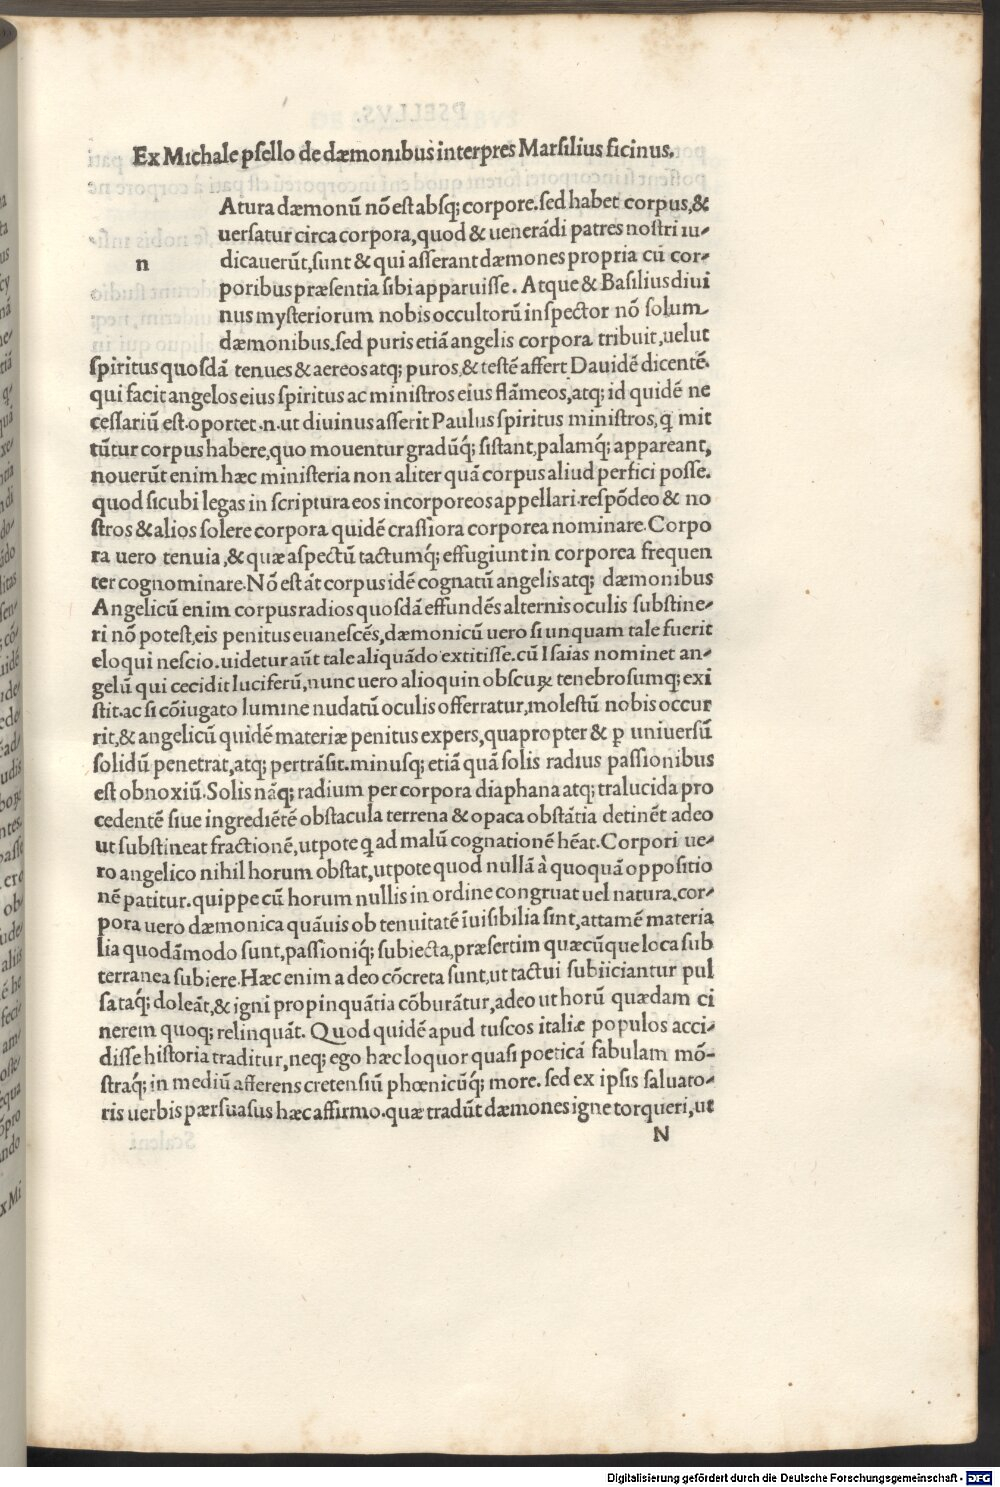 Ex Michale psello de dæmonibus interpres Marsilius ficinus.
n
Atura dæmonū nō est absq; corpore. sed habet corpus, &
uersatur circa corpora, quod & uenerādi patres nostri iu-
dicauerūt, sunt & qui asserant dæmones propria cū cor-
poribus præsentia sibi apparuisse. Atque & Basilius diui
nus mysteriorum nobis occultorū inspector nō solum
dæmonibus. sed puris etiā angelis corpora tribuit, uelut
spiritus quosdā tenues & aereos atq; puros, & testē affert Dauidē dicentē.
qui facit angelos eius spiritus ac ministros eius flāmeos, atq; id quidē ne
cessariū est. oportet .n. ut diuinus asserit Paulus spiritus ministros, q mit
tūtur corpus habere, quo mouentur gradūq; sistant, palamq; appareant,
nouerūt enim hæc ministeria non aliter quā corpus aliud perfici posse.
quod sicubi legas in scriptura eos incorporeos appellari. respōdeo & no
stros & alios solere corpora quidē crassiora corporea nominare. Corpo
ra uero tenuia, & quæ aspectū tactumq; effugiunt in corporea frequen
ter cognominare. Nō est āt corpus idē cognatū angelis atq; dæmonibus
Angelicū enim corpus radios quosdā effundēs alternis oculis substine-
ri nō potest, eis penitus euanescēs, dæmonicū uero si unquam tale fuerit
eloqui nescio. uidetur aūt tale aliquādo extitisse. cū Isaias nominet an-
gelū qui cecidit luciferū, nunc uero alioquin obscuꝝ tenebrosumq; exi
stit. ac si cōiugato lumine nudatū oculis offerratur, molestū nobis occur
rit, & angelicū quidē materiæ penitus expers, quapropter & ꝑ uniuersū
solidū penetrat, atq; pertrāsit. minusq; etiā quā solis radius passionibus
est obnoxiū. Solis nāq; radium per corpora diaphana atq; tralucida pro
cedentē siue ingrediētē obstacula terrena & opaca obstātia detinēt adeo
ut substineat fractionē, utpote q ad malū cognationē hēat. Corpori ue-
ro angelico nihil horum obstat, utpote quod nullā à quoquā oppositio
nē patitur. quippe cū horum nullis in ordine congruat uel natura. cor-
pora uero dæmonica quāuis ob tenuitatē īuisibilia sint, attamē materia
lia quodāmodo sunt, passioniq; subiecta, præsertim quæcūque loca sub
terranea subiere. Hæc enim adeo cōcreta sunt, ut tactui subiiciantur pul
sataq; doleāt, & igni propinquātia cōburātur, adeo ut horū quædam ci
nerem quoq; relinquāt. Quod quidē apud tuscos italiæ populos acci-
disse historia traditur, neq; ego hæc loquor quasi poeticā fabulam mō-
straq; in mediū afferens cretensiū phœnicūq; more. sed ex ipsis saluato-
ris uerbis pærsuasus hæc affirmo. quæ tradūt dæmones igne torqueri, ut
N
Digitalisierung gefördert durch die Deutsche Forschungsgemeinschaft - DFG